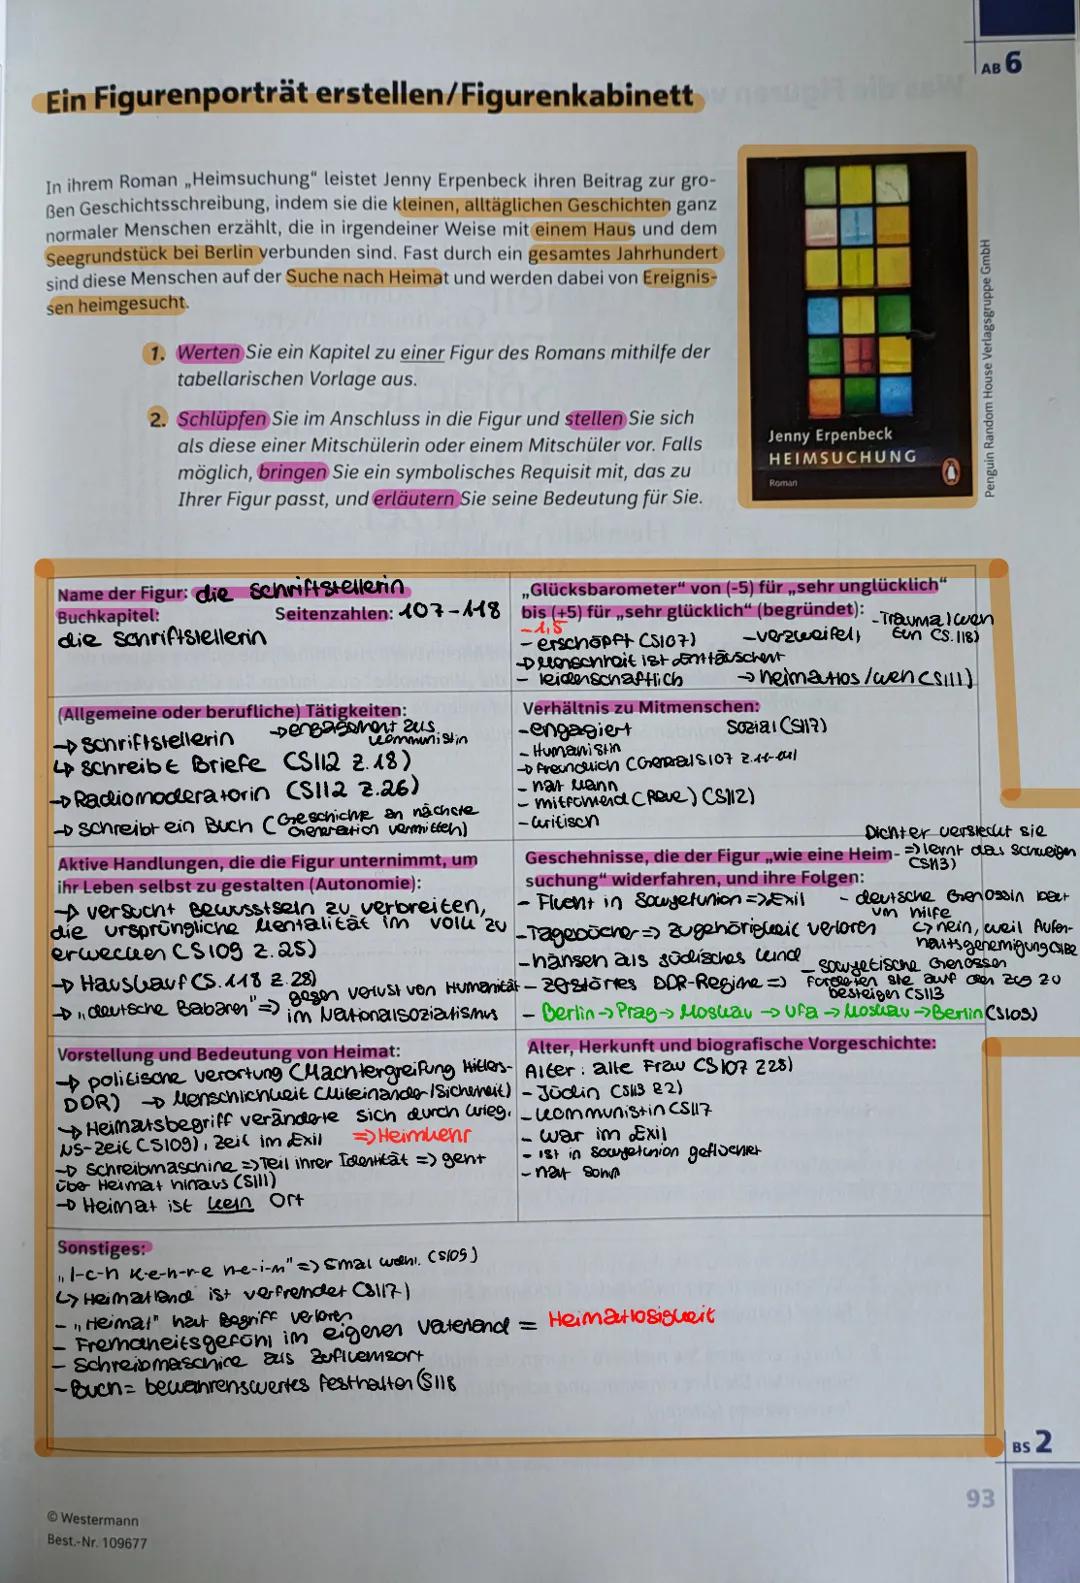 AB 6
Ein Figurenporträt erstellen/Figurenkabinett
In ihrem Roman „Heimsuchung“ leistet Jenny Erpenbeck ihren Beitrag zur gro-
ßen Geschichtsschreibung, indem sie die kleinen, alltäglichen Geschichten ganz
normaler Menschen erzählt, die in irgendeiner Weise mit einem Haus und dem
Seegrundstück bei Berlin verbunden sind. Fast durch ein gesamtes Jahrhundert
sind diese Menschen auf der Suche nach Heimat und werden dabei von Ereignis-
sen heimgesucht.
1. Werten Sie ein Kapitel zu einer Figur des Romans mithilfe der
tabellarischen Vorlage aus.
2. Schlüpfen Sie im Anschluss in die Figur und stellen Sie sich
als diese einer Mitschülerin oder einem Mitschüler vor. Falls
möglich, bringen Sie ein symbolisches Requisit mit, das zu
Ihrer Figur passt, und erläutern Sie seine Bedeutung für Sie.
Jenny Erpenbeck
HEIMSUCHUNG
Roman
Penguin Random House Verlagsgruppe GmbH
Name der Figur: die Schriftstellerin
Buchkapitel: Seitenzahlen: 107-118
die Schriftstellerin
„Glücksbarometer“ von (-5) für „sehr unglücklich“
bis (+5) für „sehr glücklich“ (begründet): - Trauma
-1,5
- erschöpft (S107) - verzweifelt (S.118)
→ Menschheit ist enttäuscht
- leidenschaftlich → heimatlos (S111)
(Allgemeine oder berufliche) Tätigkeiten:
→ Schriftstellerin → engagement als Kommunistin
↳ schreibt Briefe (S112 z.18)
→ Radiomoderatorin (S112 z.26)
→ schreibt ein Buch (Geschichte an nächste
Generation vermitteln)
Verhältnis zu Mitmenschen:
- engagiert sozial (S117)
- Humanistin
→ freundlich (General S107
- hat Mann
- mitfühlend (S112)
- kritisch
Aktive Handlungen, die die Figur unternimmt, um
ihr Leben selbst zu gestalten (Autonomie):
→ versucht Bewusstsein zu verbreiten,
die ursprüngliche Mentalität im Volk zu
erwecken (S109 z.25)
→ Hauskauf (S.118 z.28)
→ „deutsche Babaren“ => gegen verlust von Humanität
im Nationalsozialismus
Dichter versteckt sie
=> lernt das Schweigen
(S113)
Geschehnisse, die der Figur „wie eine Heim-
suchung“ widerfahren, und ihre Folgen:
- Flucht in Sowjetunion => Exil
- deutsche Genossin
um hilfe
↳ nein, weil Aufent-
haltsgenehmigung
- Tagebücher => zugehörigkeit verloren
- hänseln als jüdisches kind
- sowjetische Genossen
forderten sie auf den zug zu
besteigen (S113
- zerstörtes DDR-Regime =>
- Berlin → Prag → Moskau → Ufa → Moskau → Berlin (S109)
Vorstellung und Bedeutung von Heimat:
→ politische verortung (Machtergreifung Hitlers-
DDR) → Menschlichkeit (Miteinander/Sicherheit)
→ Heimatsbegriff veränderte sich durch krieg,
NS-Zeit (S109), Zeit im Exil => Heimkehr
→ Schreibmaschine => Teil ihrer Identität => geht
über Heimat hinaus (S111)
→ Heimat ist kein Ort
Alter, Herkunft und biografische Vorgeschichte:
Alter: alte Frau (S107 z28)
- Jüdin (S113 z2)
- Kommunistin (S117
- war im Exil
- ist in Sowjetunion geflüchtet
- hat Sohn
Sonstiges:
„I-c-h k-e-h-r-e h-e-i-m“ => 5mal wdhl. (S109)
↳ Heimatland ist verfremdet (S117)
- „Heimat“ hat Begriff verloren
- Fremdheitsgefühl im eigenen Vaterland = Heimatlosigkeit
- Schreibmaschine als Zufluchtsort
- Buch = bewahrenswertes festhalten (S118
BS 2
93
© Westermann
Best.-Nr. 109677